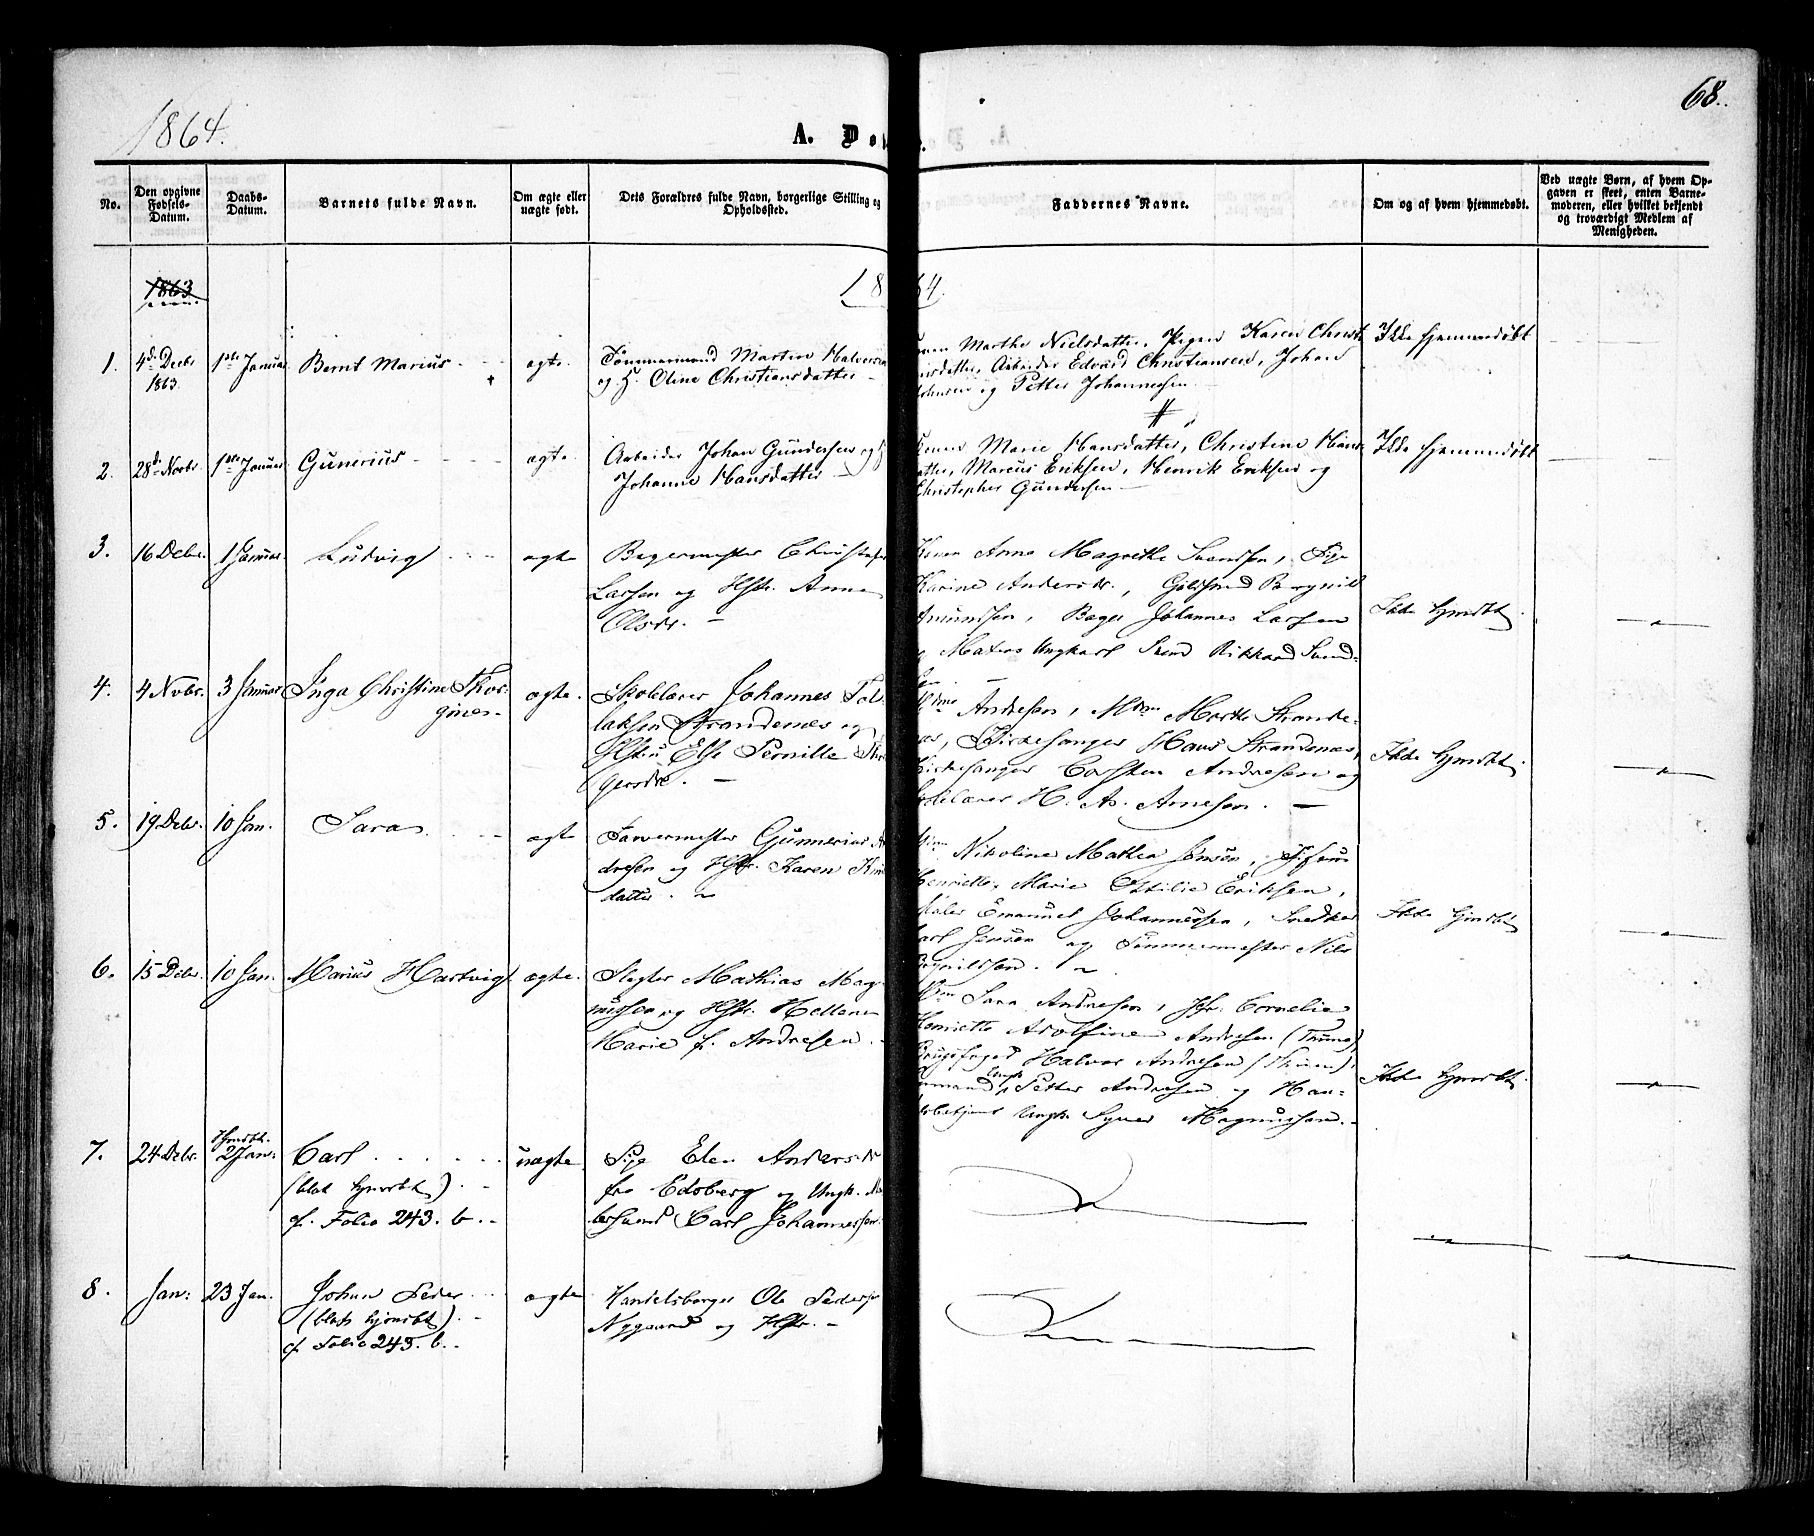 68.
1864.
A. Dø
No.
Den opgivne Fødsels-Datum.
Daabs-Datum.
Barnets fulde Navn.
Om ægte eller uægte født.
Dets Forældres fulde Navn, borgerlige Stilling og Opholdssted.
Faddernes Navne.
Om og af hvem hjemmedøbt.
Ved uægte Børn, af hvem Opgaven er skeet, enten Barnemoderen, eller hvilket bekjendt og troværdigt Medlem af Menigheden.
1863
1864.
1. 4d Decbr 1863. 1ste Januar Bernt Marius ægte. Tømmermand Martin Halvorsen
og H. Oline Christiansdatter
Marthe Nielsdatter, Pigen Karen Christi
Arbeider Edvard Christiansen, Johan
og Petter Johannesen
Ikke hjemmedøbt
2. 28d Novbr. 1ste Januar Gunerius ægte Arbeider Johan Gundersen og H
Johanne Hansdatter
Marie Hansdatter, Christine Hans
Marcus Eriksen, Henrik Eriksen og
Christopher Gundersen
Ikke hjemmedøbt
3. 16 Debr. 1 Januar Ludvig ægte Bagermester Christofer
Larsen og Hstr. Anne
Olsdr.
Anne Magrethe Svendsen, Pige
Karine Andersdr., Guldsmed Bargnild
Amundsen, Bager Johannes Larsen
Ungkarl Svend Rikkard Svend-
sen
Ikke hjmdbt
4. 4 Nvbr. 3 Januar Inga Christine Thor-
gine ægte. Skolelærer Johannes Tol-
laksen Strandenæs og
Hstru Else Pernille
Mdme Andresen, Mdm Marthe Strande-
næs, Kirkesanger Hans Strandenæs,
Kirkesanger Carsten Andresen og
Skolelærer H. A. Arnesen.
Ikke hjmdbt
5. 19 Debr. 10 Jan. Sara ægte Farvermester Gunnerius An
dresen og Hstr. Karen
datter.
Nikoline Mathea Jensen,
Henriette Marie Otilie Eriksen,
Maler Emanuel Johannessen, Snedker
Carl Jensen og Tømmermester Nils
Ikke hjmdbt
6. 15 Debr. 10 Jan. Marius Hartvig ægte. Slagter Mathias Mag-
nussen og Hstr. Hellene
Marie f. Andresen.
Sara Andresen, Jfr. Cornelia
Henriette Adolfine Andresen
Halvor Andresen
Petter Andresen og Han-
Ungk. Syver Magnussen.
Ikke hjmdbt
7. 24 Debr. Hjmdbt. 2 Jan: Carl
(blot hjmdbt)
cf. Folio 243. b.
uægte Pige Elen Andersdr
fra Edsberg og Ungk.
Carl Johannessen.
8. Jan: 23 Jan. Johan Peder
(blot hjmdbt)
cf Folio 243. b.
ægte Handelsborger Ole Pedersen
Nygaard og Hstr.